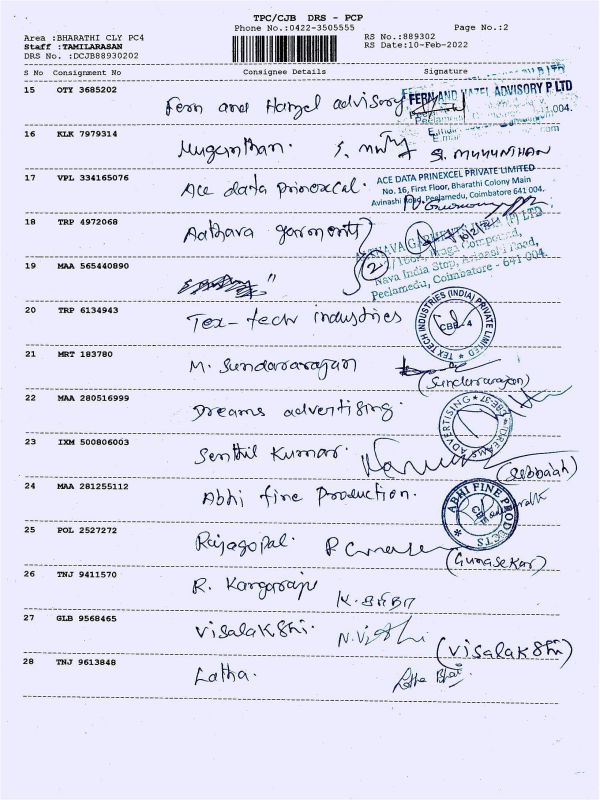 TPC/CJB DRS - PCP
Phone No.:0422-3505555 Page No.:2
Area :BHARATHI CLY PC4 RS No.:889302
Staff :TAMILARASAN RS Date:10-Feb-2022
DRS No. :DCJB88930202
S No Consignment No Consignee Details Signature
15 OTY 3685202
Fern and Hazel advisory FERN AND HAZEL ADVISORY P LTD
16 KLK 7979314
Muganthan.
17 VPL 334165076
Ace data prinexcal. ACE DATA PRINEXCEL PRIVATE LIMITED
No. 16, First Floor, Bharathi Colony Main
Avinashi Road, Peelamedu, Coimbatore 641 004.
18 TRP 4972068
Aathava garments
Nava India Stop, Avinashi Road,
Peelamedu, Coimbatore - 641 004.
19 MAA 565440890
2
20 TRP 6134943
Tex-tech industries TEX TECH INDUSTRIES (INDIA) PRIVATE LIMITED
CBE-4
21 MRT 183780
M. Sundararajan (Sundararajan)
22 MAA 280516999
Dreams advertising. DREAMS ADVERTISING CBE-37
23 IXM 500806003
Senthil Kumar. (Sebbaiah)
24 MAA 281255112
Abhi fine Production. ABHI FINE PRODUCTS
25 POL 2527272
Rajagopal. (Gunasekar)
26 TNJ 9411570
R. Kangaraju
27 GLB 9568465
Visalakshi. (Visalakshi)
28 TNJ 9613848
Latha. Latha Bhat